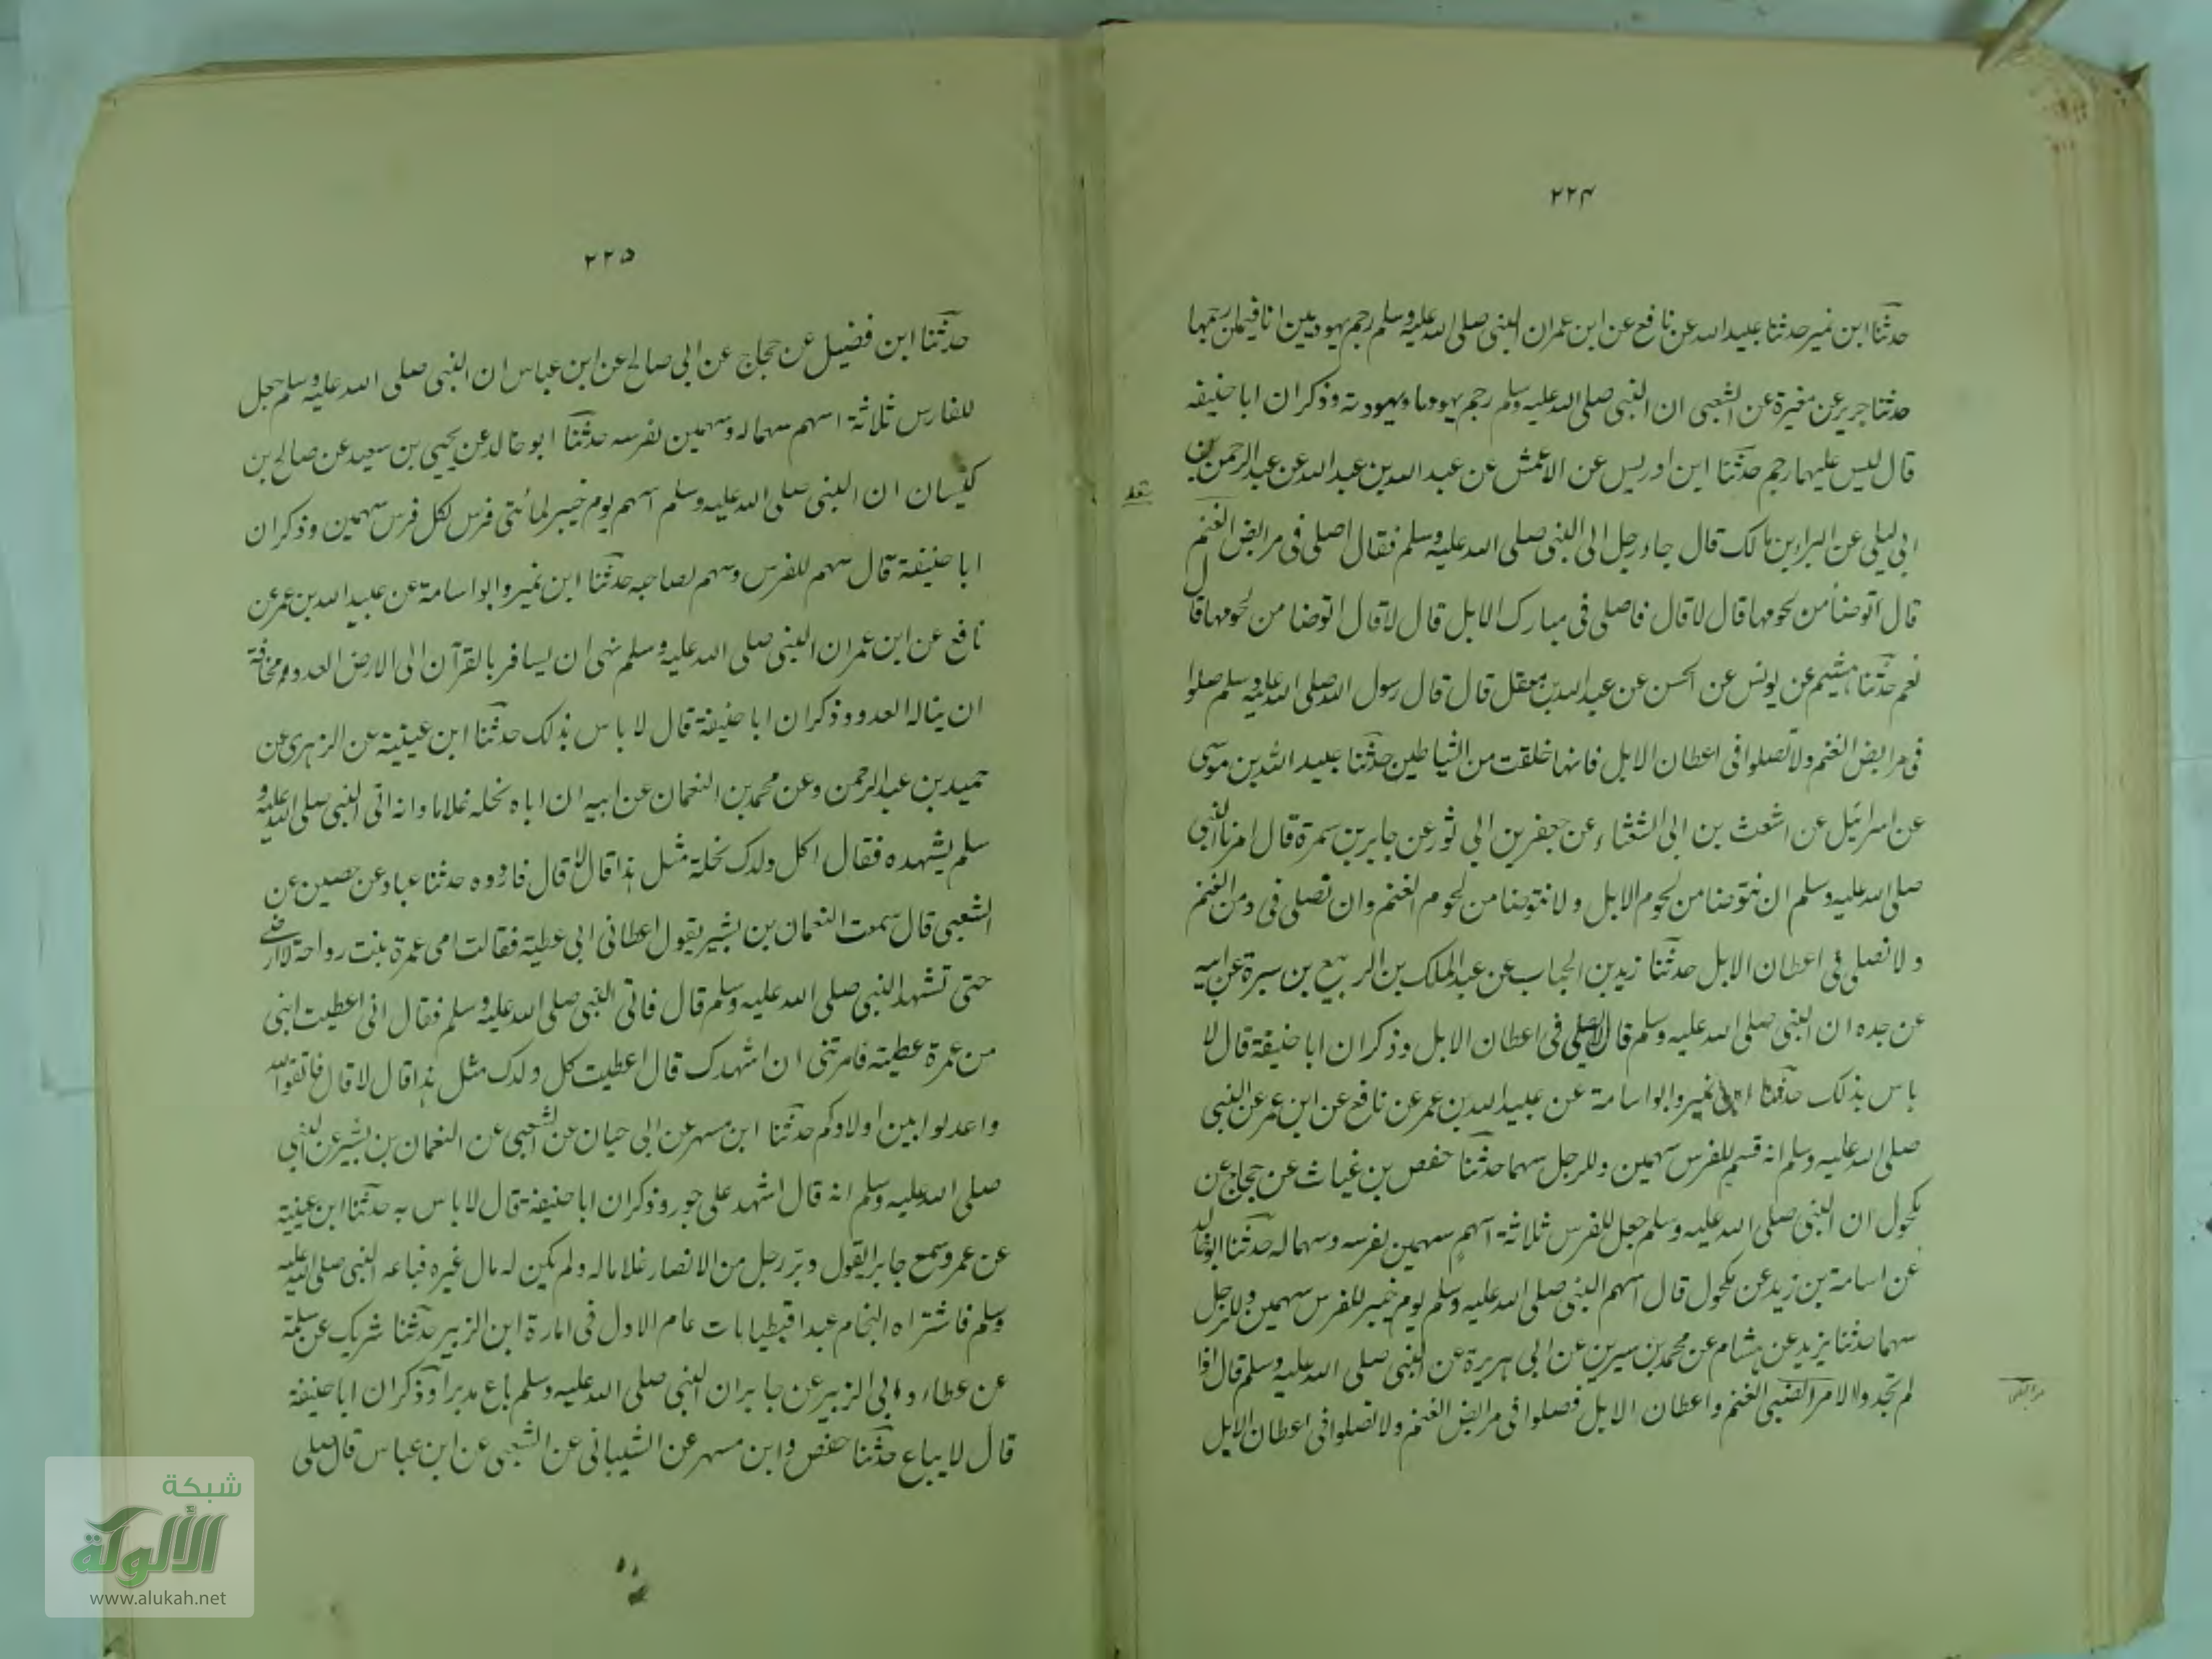 ۲۲۴
حدثنا ابن نمير حدثنا عبيد الله عن نافع عن ابن عمر ان النبى صلى الله عليه وسلم رجم يهوديين انا فيمن رجمهما
حدثنا جرير عن مغيرة عن الشعبى ان النبى صلى الله عليه وسلم رجم يهوديا ويهودية وذكر ان ابا حنيفة
قال ليس عليهما رجم حدثنا ابن ادريس عن الاعمش عن عبد الله بن عبد الله عن عبد الرحمن بن
ابى ليلى عن البراء بن مالك قال جاء رجل الى النبى صلى الله عليه وسلم فقال اصلى فى مرابض الغنم
قال اتوضأ من لحومها قال لا قال فاصلى فى مبارك الابل قال لا قال اتوضا من لحومها قال
نعم حدثنا هشيم عن يونس عن الحسن عن عبد الله بن معقل قال قال رسول الله صلى الله عليه وسلم صلوا
فى مرابض الغنم ولا تصلوا فى اعطان الابل فانها خلقت من الشياطين حدثنا عبيد الله بن موسى
عن اسرائيل عن اشعث بن ابى الشعثاء عن جعفر بن ابى ثور عن جابر بن سمرة قال امرنا النبى
صلى الله عليه وسلم ان نتوضا من لحوم الابل ولا نتوضا من لحوم الغنم وان نصلى فى ومن الغنم
ولا نصلى فى اعطان الابل حدثنا زيد بن الحباب عن عبد الملك بن الربيع بن سبرة عن ابيه
عن جده ان النبى صلى الله عليه وسلم قال لا يصلى فى اعطان الابل وذكر ان ابا حنيفة قال لا
باس بذلك حدثنا ابن نمير وابو اسامة عن عبيد الله بن عمر عن نافع عن ابن عمر عن النبى
صلى الله عليه وسلم انه قسم للفرس سهمين وللرجل سهما حدثنا حفص بن غياث عن حجاج عن
مكحول ان النبى صلى الله عليه وسلم جعل للفرس ثلاثة اسهم سهمين لفرسه وسهما له حدثنا ابو خالد
عن اسامة بن زيد عن مكحول قال اسهم النبى صلى الله عليه وسلم يوم خيبر للفرس سهمين وللرجل
سهما حدثنا يزيد عن هشام عن محمد بن سيرين عن ابى هريرة عن النبى صلى الله عليه وسلم قال اذا
لم تجدوا الا الغنم واعطان الابل فصلوا فى مرابض الغنم ولا تصلوا فى اعطان الابل
۲۲۵
حدثنا ابن فضيل عن حجاج عن ابى صالح عن ابن عباس ان النبى صلى الله عليه وسلم جعل
للفارس ثلاثة اسهم سهما له وسهمين لفرسه حدثنا ابو خالد عن يحيى بن سعيد عن صالح بن
كيسان ان النبى صلى الله عليه وسلم اسهم يوم خيبر لمائتى فرس لكل فرس سهمين وذكر ان
ابا حنيفة قال سهم للفرس وسهم لصاحبه حدثنا ابن نمير وابو اسامة عن عبيد الله بن عمر عن
نافع عن ابن عمر ان النبى صلى الله عليه وسلم نهى ان يسافر بالقرآن الى الارض العدو مخافة
ان يناله العدو وذكر ان ابا حنيفة قال لا باس بذلك حدثنا ابن عيينة عن الزهرى عن
حميد بن عبد الرحمن وعن محمد بن النعمان عن ابيه ان اباه نحله غلاما وانه اتى النبى صلى الله عليه و
سلم يشهده فقال اكل ولدك نحلة مثل هذا قال لا قال فاردده حدثنا عباد عن حصين عن
الشعبى قال سمعت النعمان بن بشير يقول اعطانى ابى عطية فقالت امى عمرة بنت رواحة لا ارضى
حتى تشهد النبى صلى الله عليه وسلم قال فاتى النبى صلى الله عليه وسلم فقال انى اعطيت ابنى
من عمرة عطية فامرتنى ان اشهدك قال اعطيت كل ولدك مثل هذا قال لا قال فاتقوا الله
واعدلوا بين اولادكم حدثنا ابن مسهر عن ابى حيان عن الشعبى عن النعمان بن بشير عن النبى
صلى الله عليه وسلم انه قال اشهد على جور وذكر ان ابا حنيفة قال لا باس به حدثنا ابن عيينة
عن عمرو سمع جابرا يقول دبر رجل من الانصار غلاما له ولم يكن له مال غيره فباعه النبى صلى الله عليه
وسلم فاشتراه النحام عبدا قبطيا مات عام الاول فى امارة ابن الزبير حدثنا شريك عن سلمة
عن عطاء وابى الزبير عن جابر ان النبى صلى الله عليه وسلم باع مدبرا وذكر ان ابا حنيفة
قال لا يباع حدثنا حفص وابن مسهر عن الشيبانى عن الشعبى عن ابن عباس قال صلى
شبكة
الألوكة
www.alukah.net